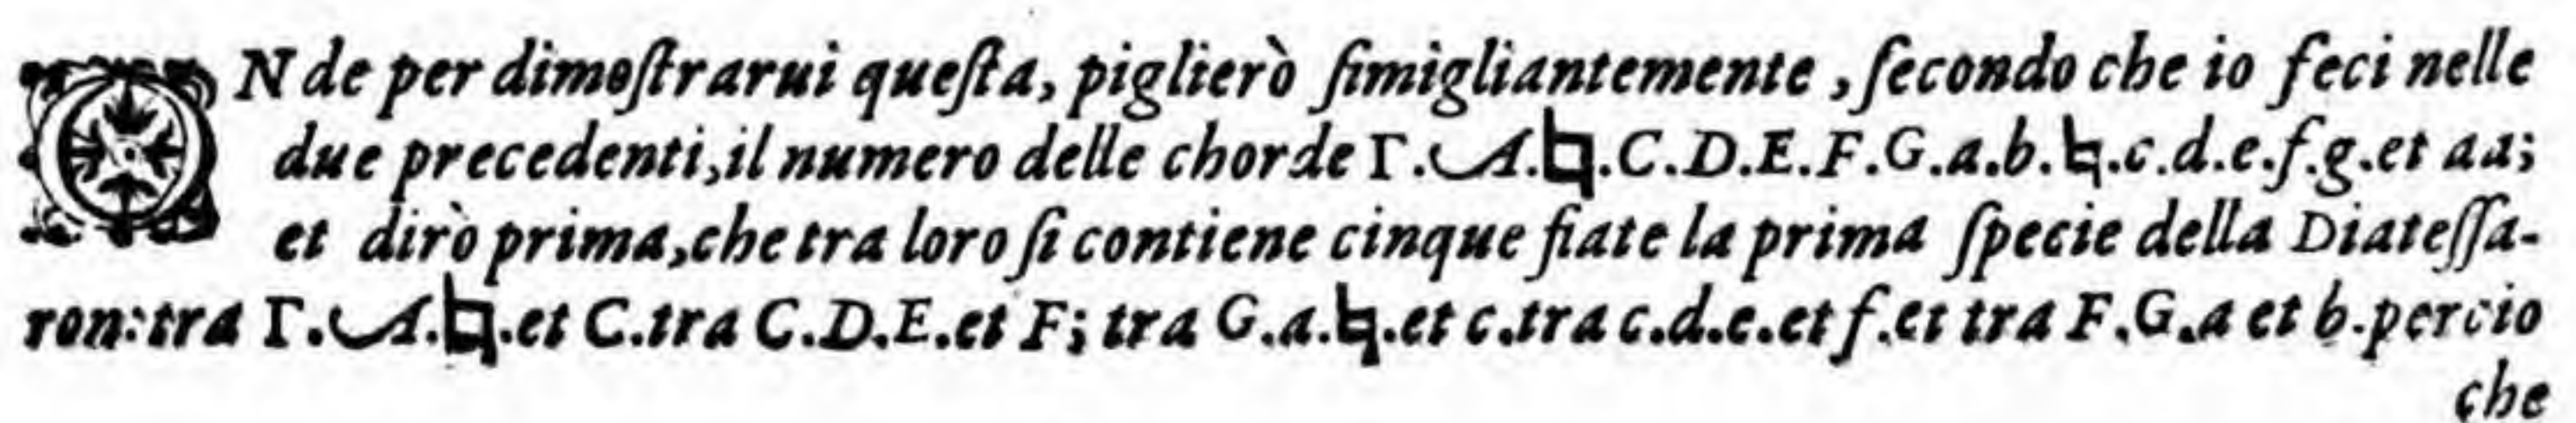 ONde per dimoſtrarui queſta, piglierò ſimigliantemente, ſecondo che io feci nelle
due precedenti, il numero delle chorde Γ. A. ♮. C. D. E. F. G. a. b. ♮. c. d. e. f. g. et aa;
et dirò prima, che tra loro ſi contiene cinque fiate la prima ſpecie della Diateſſa-
ron: tra Γ. A. ♮. et C. tra C. D. E. et F; tra G. a. ♮. et c. tra c. d. e. et f. et tra F. G. a et b. percio
che